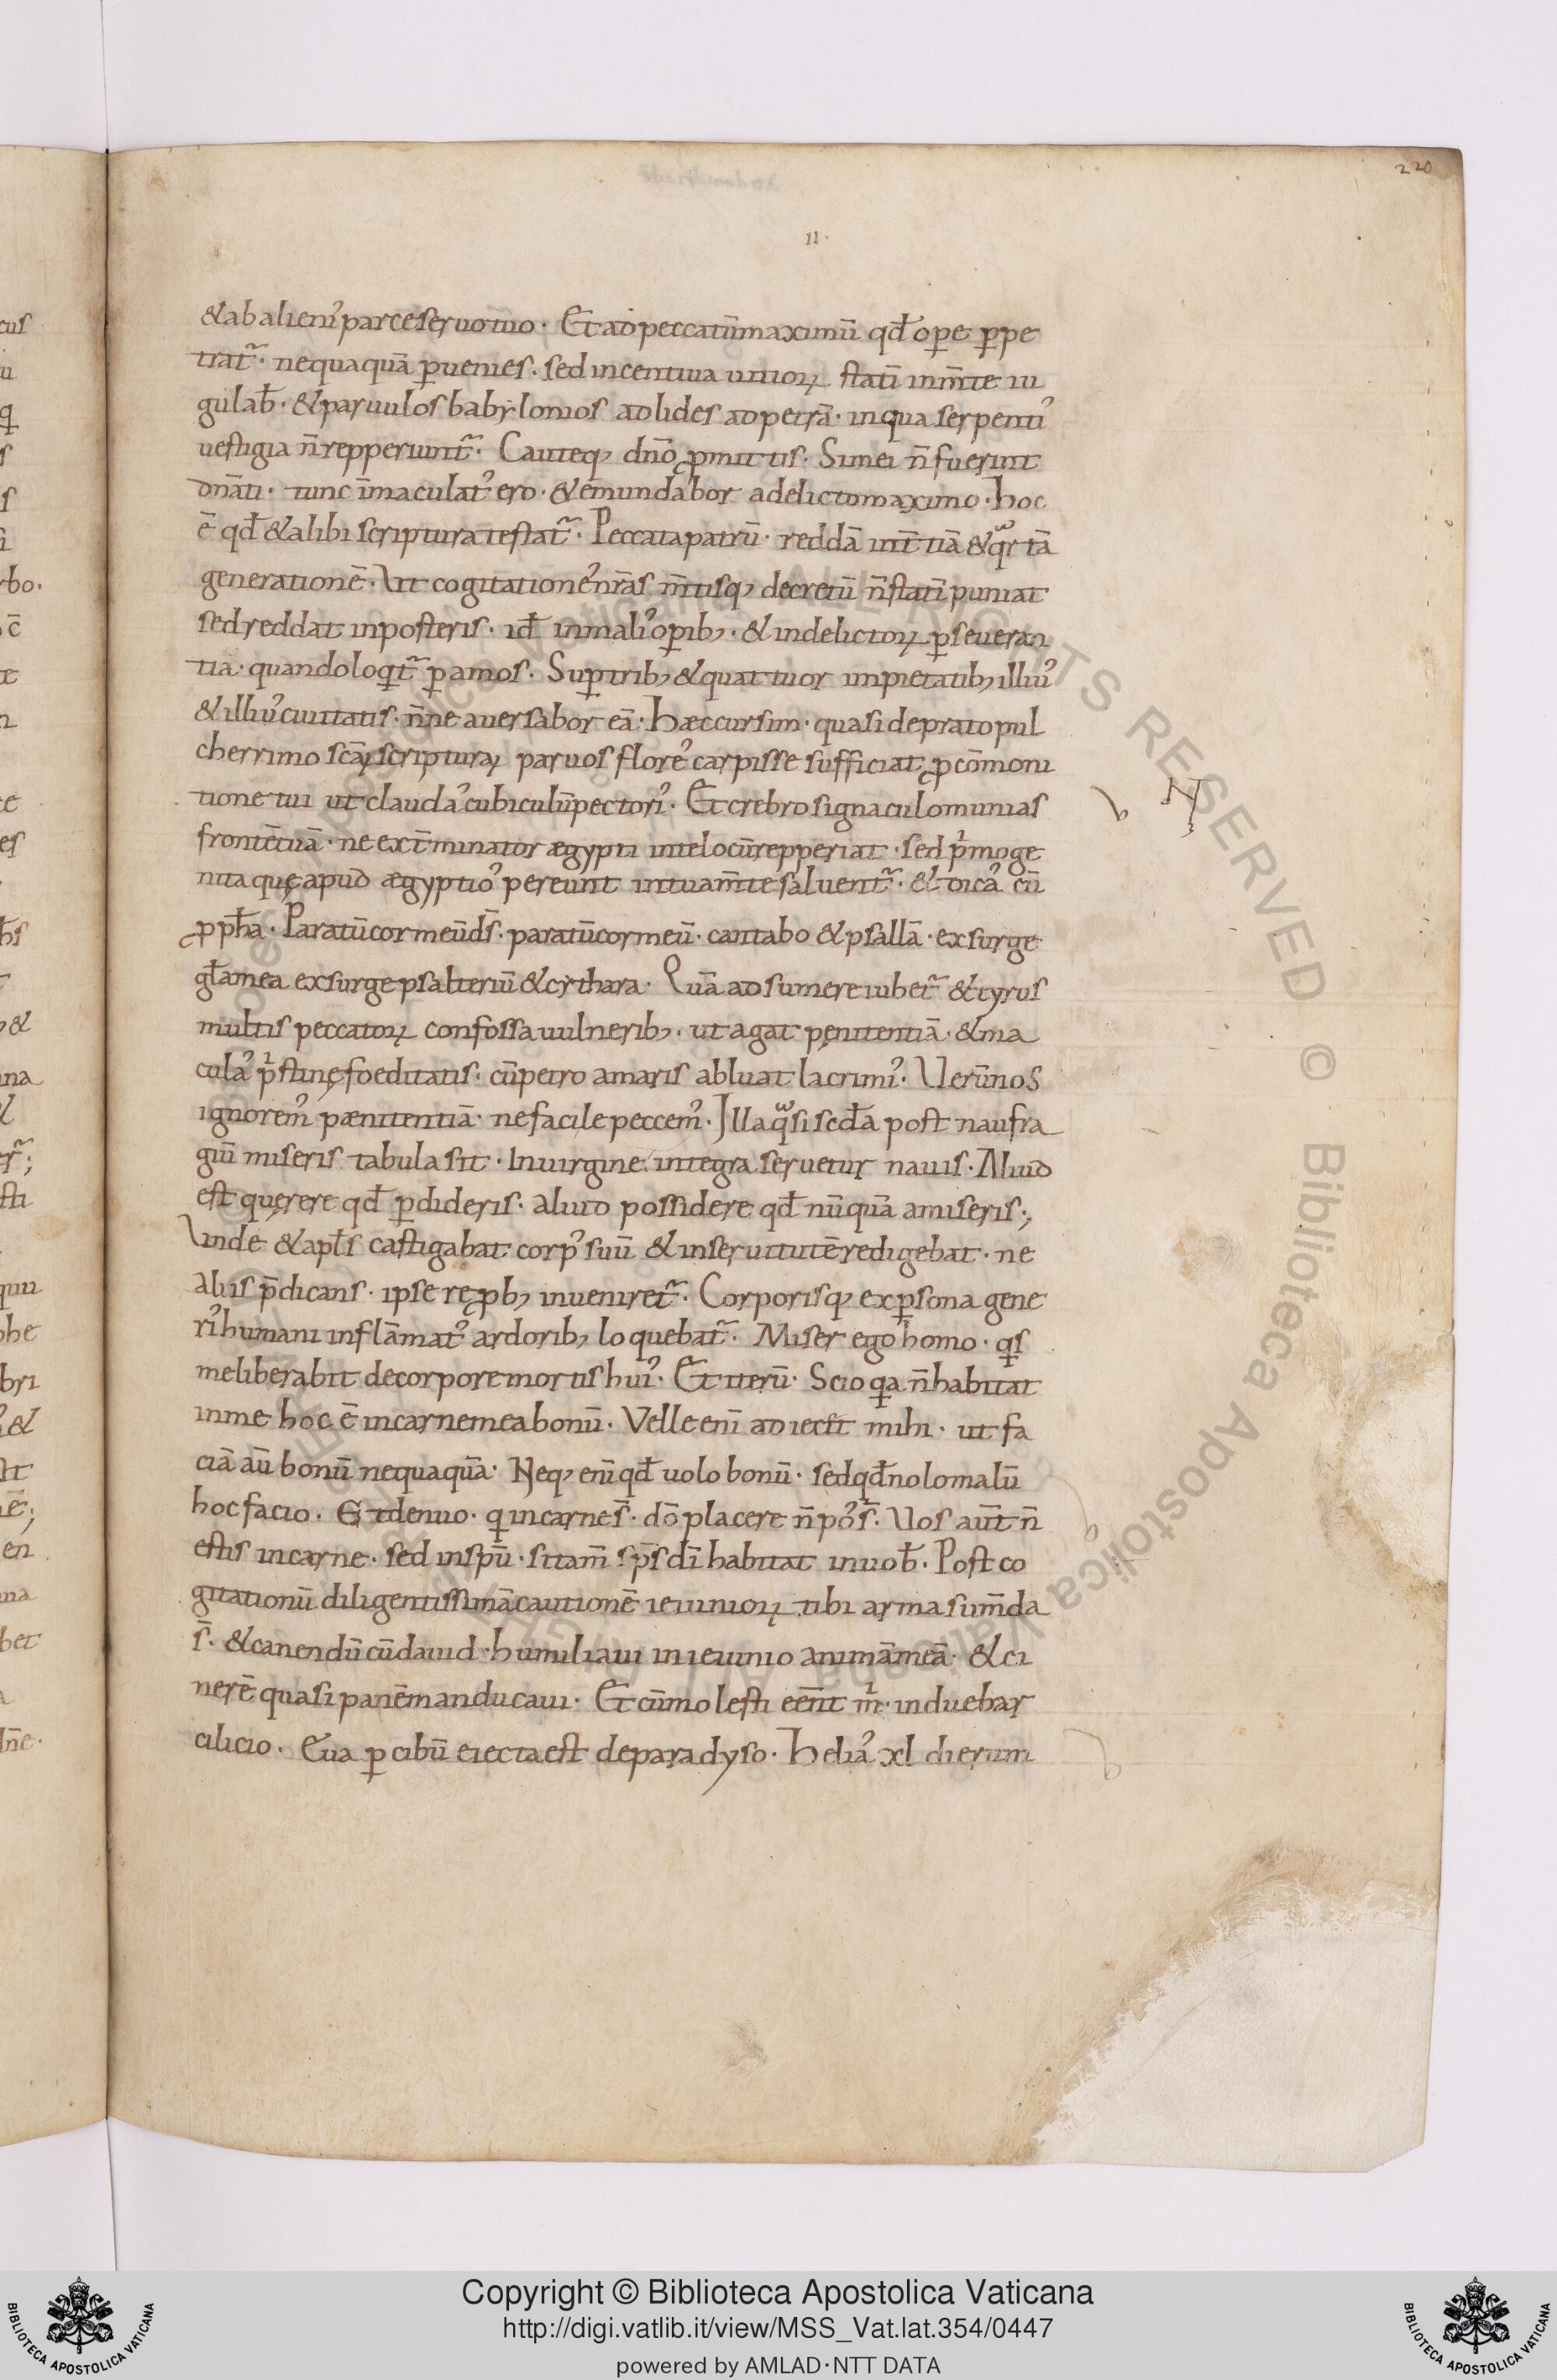 220
II·
&ab alieni᾽ parce seruo tuo · Et ad peccatū maximū qđ oꝑe ꝑpe
trat᷑ · nequaquā ꝑuenies · sed incentiua uitioꝝ statī in m̅te iu
gulab̄ · & paruulos babylonios adlides ad petrā · in qua serpenti᾽
uestigia n̄ repperiunt᷑ · Cauteq; dn̄o ꝓmittis · Si mei n̄ fuerint
dn̄ati · tunc īmaculat᾽ ero · & ēmundabor a delicto maximo · hoc
ē qđ & alibi scriptura testat᷑ · Peccata patrū · reddā in t̄tiā & qͣrtā
generationē · Ut cogitatione᾽ nr̄as m̅tisq; decretū n̄ statī puniat
sed reddat in posteris · iđ in mali᾽ oꝑib; · & in delictoꝝ ꝑseueran
tia · quando loqͥt᷑ ꝑ amos · Suꝑ trib; & quattuor impietatib; illiu᾽
& illiu᾽ ciuitatis · n̄ne auersabor eā · Hæc cursim · quasi de prato pul
cherrimo sc̄aꝝ scripturaꝝ paruos flore᾽ carpisse sufficiat ꝓ cōmoni
tione tui ut clauda᾽ cubiculū pectori᾽ · Et crebro signaculo munias
frontē tuā · ne ext̄minator ægypti in te locū repperiat · sed pͥmoge
nita quę apud ægyptio᾽ pereunt in tua m̅te saluent᷑ · & dica᾽ cū
ꝓph̄a · Paratū cor meū d̄s · paratū cor meū · cantabo & psallā · exsurge
gl̄a mea exsurge psalteriū & cythara · Quā adsumere iubet᷑ & tyrus
multis peccatoꝝ confossa uulnerib; · ut agat pęnitentiā · & ma
cula᾽ pͥstinę foeditatis · cū petro amaris abluat lacrimi᾽ · Uerū nos
ignorem᾽ pænitentiā · ne facile peccem᾽ · Illa qͣsi secd̄a post naufra
giū miseris tabula sit · In uirgine integra seruetur nauis · Aliud
est quęrere qđ ꝑdideris · aliud possidere qđ nūquā amiseris ;
Unde & apl̄s castigabat corp᾽ suū & in seruitutē redigebat · ne
aliis p̄dicans · ipse reꝓb; inueniret᷑ · Corporisq; ex ꝑsona gene
ri᾽ humani inflāmat᾽ ardorib; loquebat᷑ · Miser ego homo · qͥs
me liberabit de corpore mortis hui᾽ · Et iterū · Scio qͥa n̄ habitat
in me hoc ē in carne mea bonū · Velle enī adiecit mihi · ut fa
ciā aū bonū nequaquā · Neq; enī qđ uolo bonū · sed qđ nolo malū
hoc facio · Et denuo · qͥ in carne s̄ · dō placere n̄ po᾽s̄ · Uos aūt n̄
estis in carne · sed in spū · si tam̄ sp̄s dī habitat in uob̄ · Post co
gitationū diligentissimā cautionē ieiunioꝝ tibi arma sum̄da
s̄ · & canendū cū dauid · humiliaui in ieiunio animā meā · & ci
nerē quasi panē manducaui · Et cū molesti eēnt mͥ · induebar
cilicio · Eua ꝑ cibū eiecta est de paradyso · Helia᾽ xl dierum
Copyright © Biblioteca Apostolica Vaticana
http://digi.vatlib.it/view/MSS_Vat.lat.354/0447
powered by AMLAD·NTT DATA
BIBLIOTECA APOSTOLICA VATICANA
BIBLIOTECA APOSTOLICA VATICANA